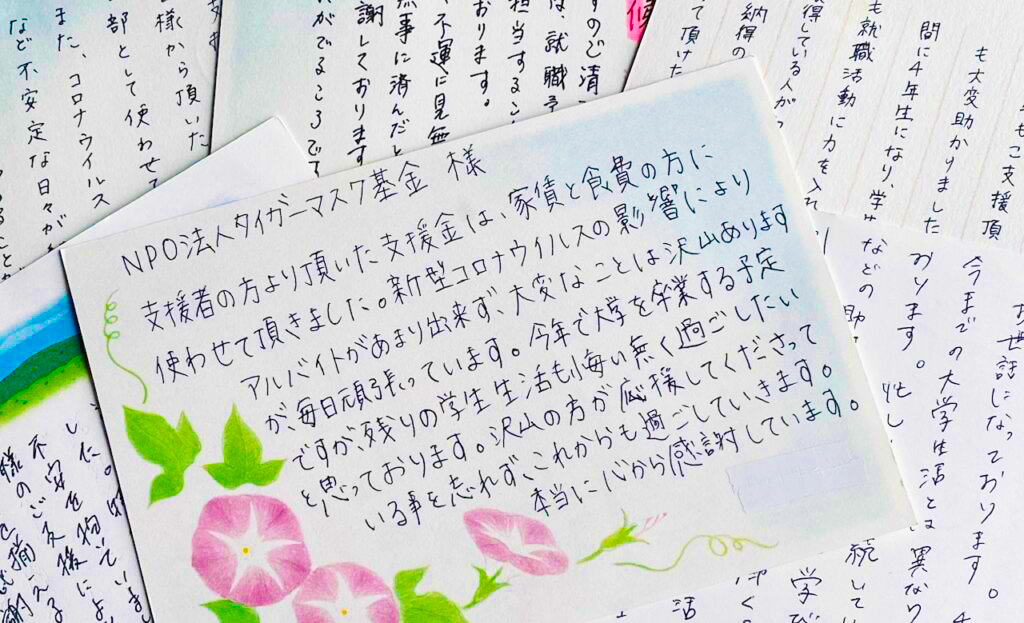 NPO法人タイガーマスク基金 様
支援者の方より頂いた支援金は、家賃と食費の方に
使わせて頂きました。新型コロナウイルスの影響により
アルバイトがあまり出来ず、大変なことは沢山あります
が、毎日頑張っています。今年で大学を卒業する予定
ですが、残りの学生生活も悔い無く過ごしたい
と思っております。沢山の方が応援してくださって
いる事を忘れず、これからも過ごしていきます。
本当に心から感謝しています。
も大変助かりました
間に4年生になり、学生
も就職活動に力を入れ
得している人が
納得の
て頂けた
もご支援頂
すのご清
は、就職予
担当するこ
おります。
不運に見無
無事に済んだと
謝しております
がでるころです
様から頂いた
部として使わせて
また、コロナウイルス
など不安定な日々が
お世話になっております。
今までの大学生活とは異なり
おります。忙し
などの
続いて
学び
活
した。
不安を抱いていま
様のご支援によ